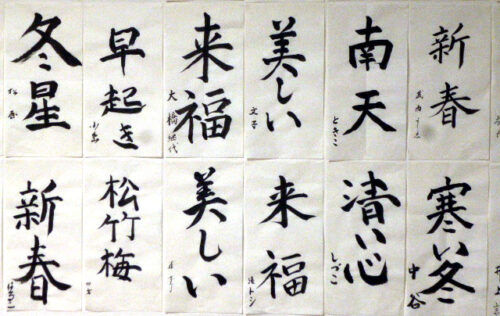 冬星
早起き
来福
大橋
美しい
文子
南天
ときこ
新春
新春
松竹梅
美しい
来福
トシ
清い心
しづこ
寒い冬
中谷